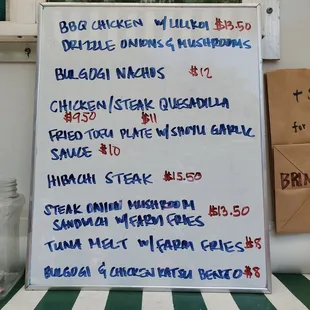 BBQ CHICKEN W/ LILIKOI $13.50
DRIZZLE ONIONS & MUSHROOMS
BULGOGI NACHOS $12
CHICKEN/STEAK QUESADILLA
$9.50 $11
FRIED TOFU PLATE W/ SHOYU GARLIC
SAUCE $10
HIBACHI STEAK $15.50
STEAK ONION MUSHROOM $13.50
SANDWICH W/ FARM FRIES
TUNA MELT W/ FARM FRIES $8
BULGOGI & CHICKEN KATSU BENTO $8
+
for